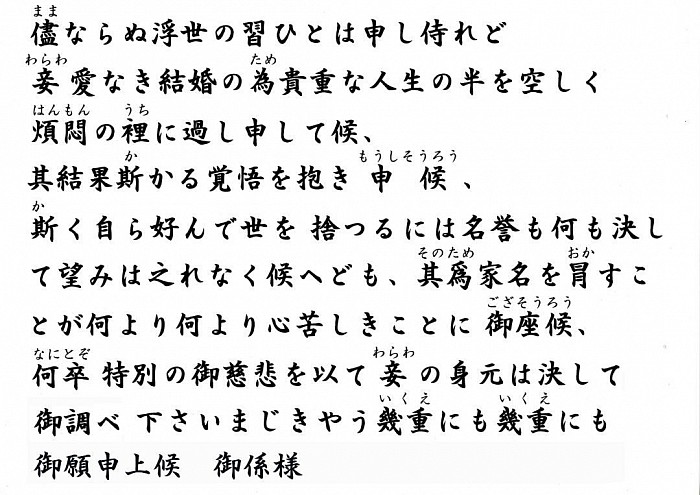 まま
儘ならぬ浮世の習ひとは申し侍れど
わらわ ため
妾愛なき結婚の為貴重な人生の半を空しく
はんもん うち
煩悶の裡に過し申して候、
か もうしそうろう
其結果斯かる覚悟を抱き 申 候 、
か
斯く自ら好んで世を 捨つるには名誉も何も決し
そのため おか
て望みは之れなく候へども、其爲家名を冒すこ
ござそうろう
とが何より何より心苦しきことに 御座候、
なにとぞ わらわ
何卒 特別の御慈悲を以て 妾 の身元は決して
いくえ いくえ
御調べ 下さいまじきやう幾重にも幾重にも
御願申上候 御係様